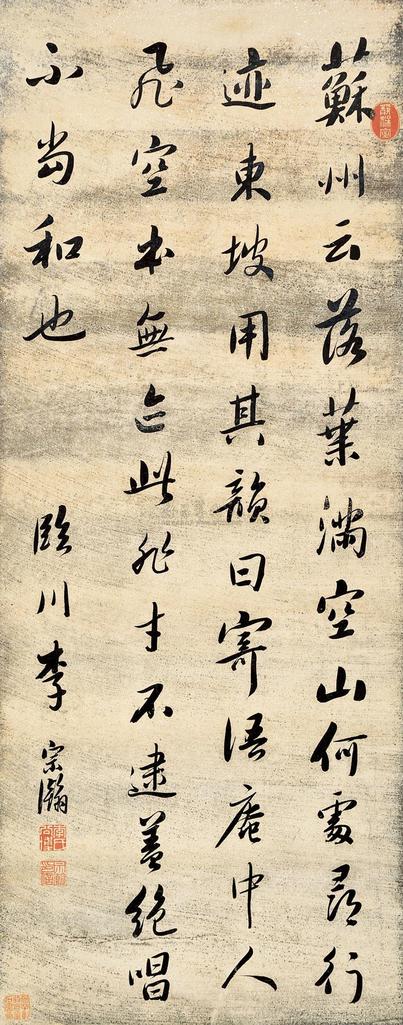 蘇州云落葉滿空山何處尋行
迹東坡用其韻曰寄語庵中人
飛空本無迹此非才不逮蓋絶唱
不當和也
臨川李宗瀚